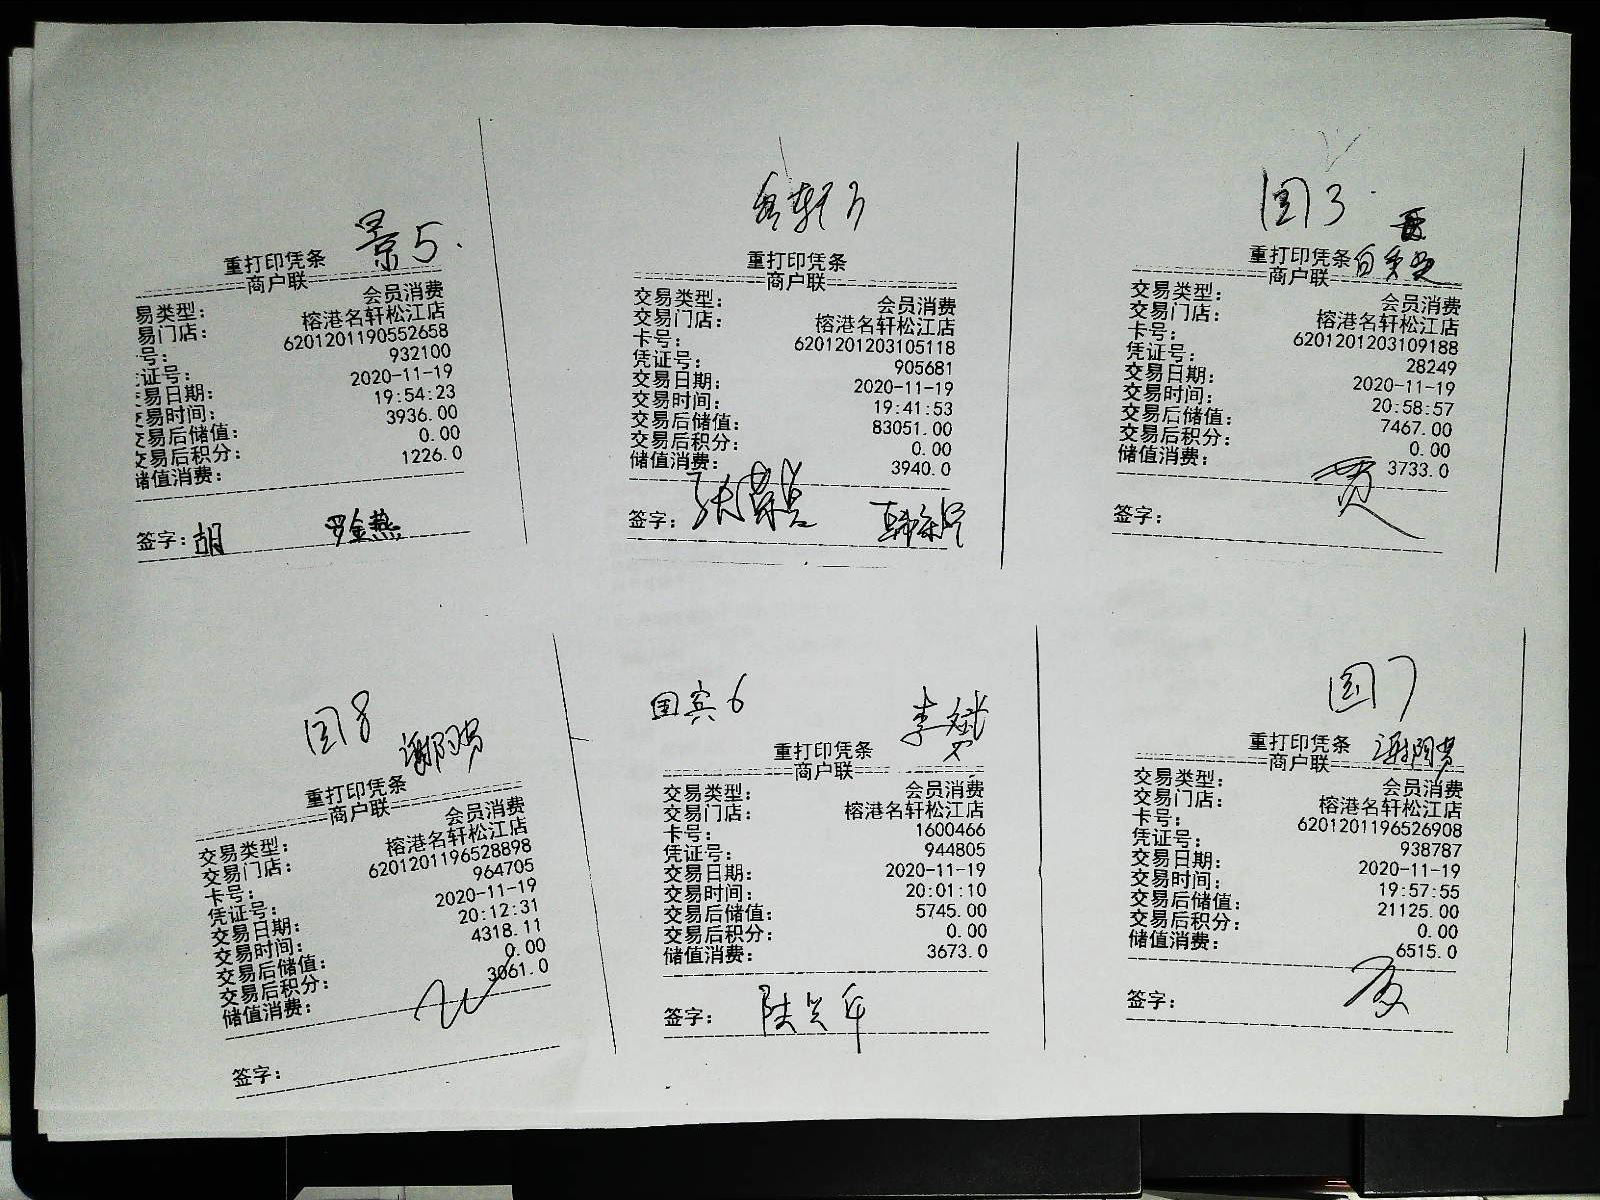 景5.
重打印凭条
商户联
易类型： 会员消费
易门店： 榕港名轩松江店
号： 6201201190552658
证号： 932100
交易日期： 2020-11-19
交易时间： 19:54:23
交易后储值： 3936.00
交易后积分： 0.00
储值消费： 1226.0
签字：胡 罗金燕
重打印凭条
商户联
交易类型： 会员消费
交易门店： 榕港名轩松江店
卡号： 6201201203105118
凭证号： 905681
交易日期： 2020-11-19
交易时间： 19:41:53
交易后储值： 83051.00
交易后积分： 0.00
储值消费： 3940.0
签字：
国3
重打印凭条
商户联
交易类型： 会员消费
交易门店： 榕港名轩松江店
卡号： 6201201203109188
凭证号： 28249
交易日期： 2020-11-19
交易时间： 20:58:57
交易后储值： 7467.00
交易后积分： 0.00
储值消费： 3733.0
贾
签字：
国8
重打印凭条
商户联
交易类型： 会员消费
交易门店： 榕港名轩松江店
卡号： 6201201196528898
凭证号： 964705
交易日期： 2020-11-19
交易时间： 20:12:31
交易后储值： 4318.11
交易后积分： 0.00
储值消费： 3061.0
签字：
国宾6 李斌
重打印凭条
商户联
交易类型： 会员消费
交易门店： 榕港名轩松江店
卡号： 1600466
凭证号： 944805
交易日期： 2020-11-19
交易时间： 20:01:10
交易后储值： 5745.00
交易后积分： 0.00
储值消费： 3673.0
签字：
国7
重打印凭条
商户联
交易类型： 会员消费
交易门店： 榕港名轩松江店
卡号： 6201201196526908
凭证号： 938787
交易日期： 2020-11-19
交易时间： 19:57:55
交易后储值： 21125.00
交易后积分： 0.00
储值消费： 6515.0
签字：